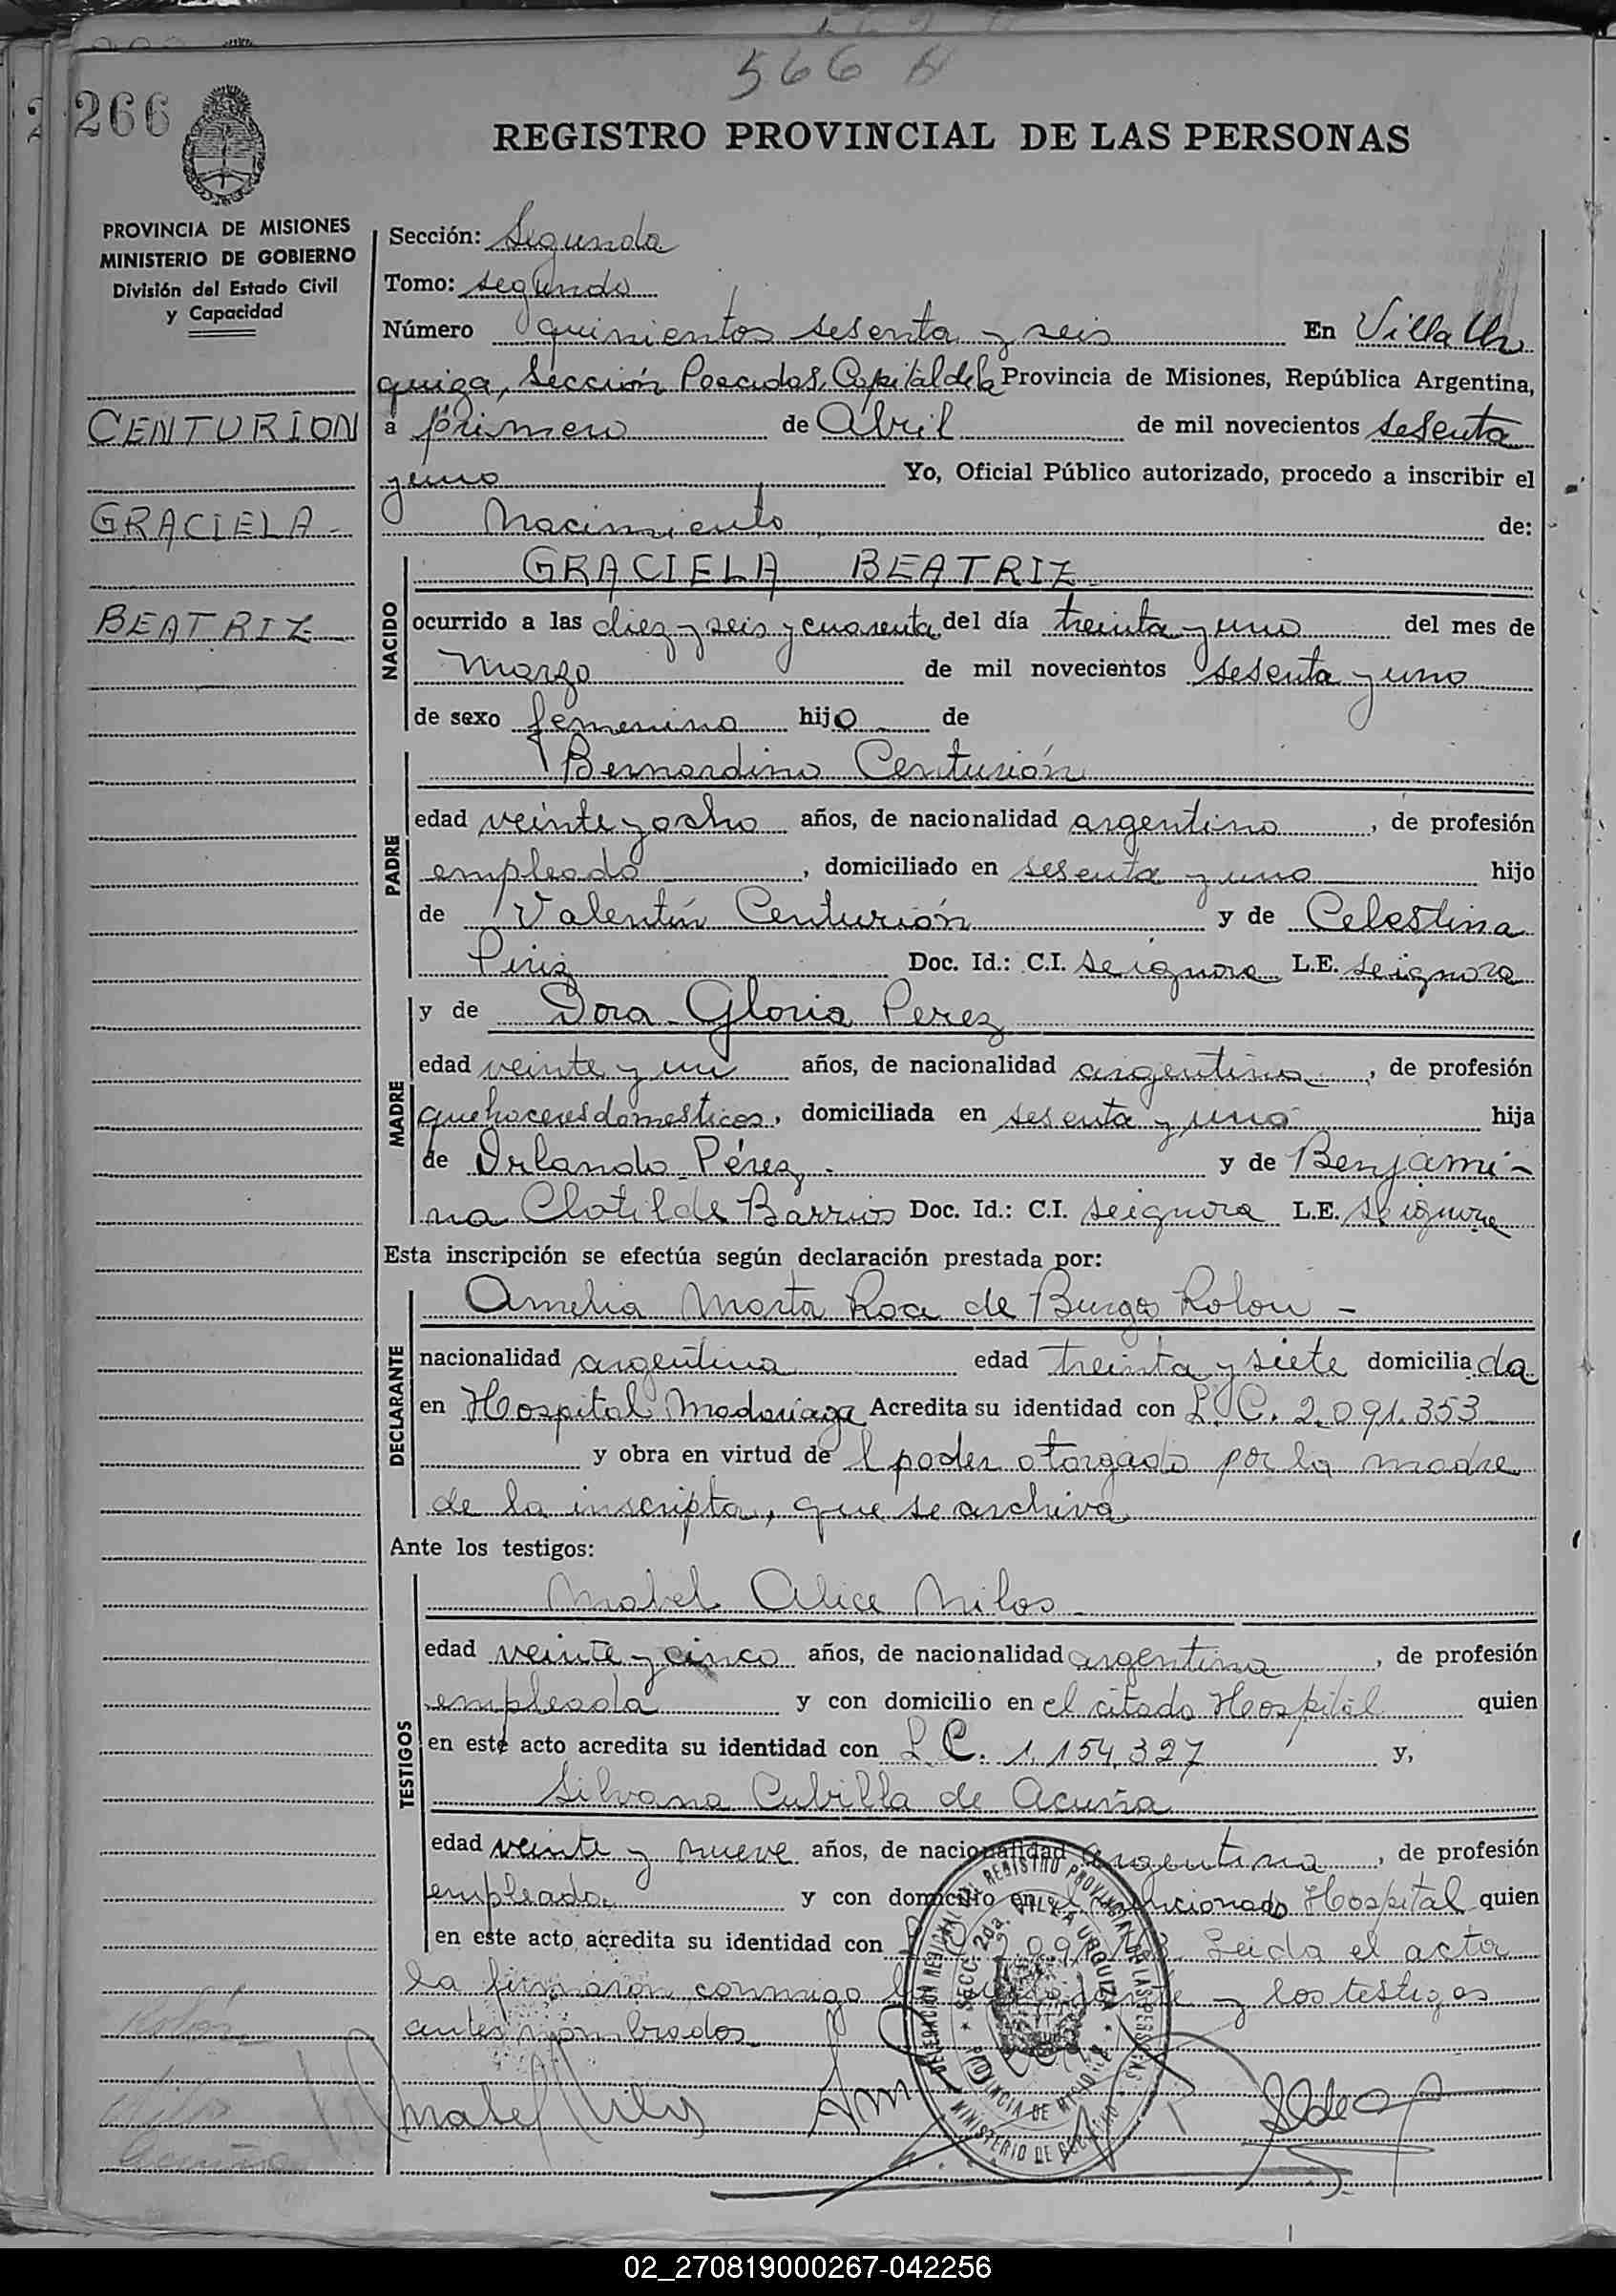 566
266
REGISTRO PROVINCIAL DE LAS PERSONAS
PROVINCIA DE MISIONES
MINISTERIO DE GOBIERNO
División del Estado Civil
y Capacidad
CENTURION
GRACIELA -
BEATRIZ
Sección: Segunda
Tomo: segundo
Número quinientos sesenta y seis En Villa Ur
quiza, Sección Posadas, Capital de la Provincia de Misiones, República Argentina,
a primero de Abril de mil novecientos sesenta
y uno Yo, Oficial Público autorizado, procedo a inscribir el
Nacimiento de:
NACIDO
GRACIELA BEATRIZ
ocurrido a las diez y seis y cuarenta del día treinta y uno del mes de
marzo de mil novecientos sesenta y uno
de sexo femenino hijo de
PADRE
Bernardino Centurión
edad veinte y ocho años, de nacionalidad argentino, de profesión
empleado, domiciliado en sesenta y uno hijo
de Valentín Centurión y de Celestina
Piriz Doc. Id.: C.I. se ignora L.E. se ignora
MADRE
y de Dora Gloria Perez
edad veinte y un años, de nacionalidad argentina, de profesión
quehaceres domesticos, domiciliada en sesenta y uno hija
de Orlando Pérez. y de Benjami-
na Clotilde Barrios Doc. Id.: C.I. se ignora L.E. se ignora
Esta inscripción se efectúa según declaración prestada por:
DECLARANTE
Amelia Marta Roa de Burgos Rolon -
nacionalidad argentina edad treinta y siete domiciliada
en Hospital Madariaga Acredita su identidad con L. C. 2.091.353
y obra en virtud del poder otorgado por la madre
de la inscripta, que se archiva
Ante los testigos:
TESTIGOS
Mabel Alice Milos
edad veinte y cinco años, de nacionalidad argentina, de profesión
empleada y con domicilio en el citado Hospital quien
en este acto acredita su identidad con L C. 1.154.327 y,
Silvana Cubilla de Acuña
edad veinte y nueve años, de nacionalidad argentina, de profesión
empleada y con domicilio en el mencionado Hospital quien
en este acto acredita su identidad con Leida el acta
la firmaron conmigo y los testigos
antes nombrados
DELEGACION REGIONAL DEL REGISTRO PROVINCIAL DE LAS PERSONAS
SECC. 2da. VILLA URQUIZA
PROVINCIA DE MISIONES
MINISTERIO DE GOBIERNO
02_270819000267-042256